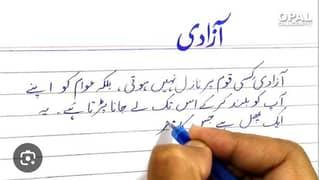 OPAL
آزادی
آزادی کسی قوم پر نازل نہیں ہوتی، بلکہ عوام کو اپنے
آپ کو بلند کر کے اس تک لے جانا پڑتا ہے۔ یہ
ایک پھل ہے جس کا